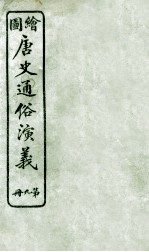 繪圖
唐史通俗演義
第冊